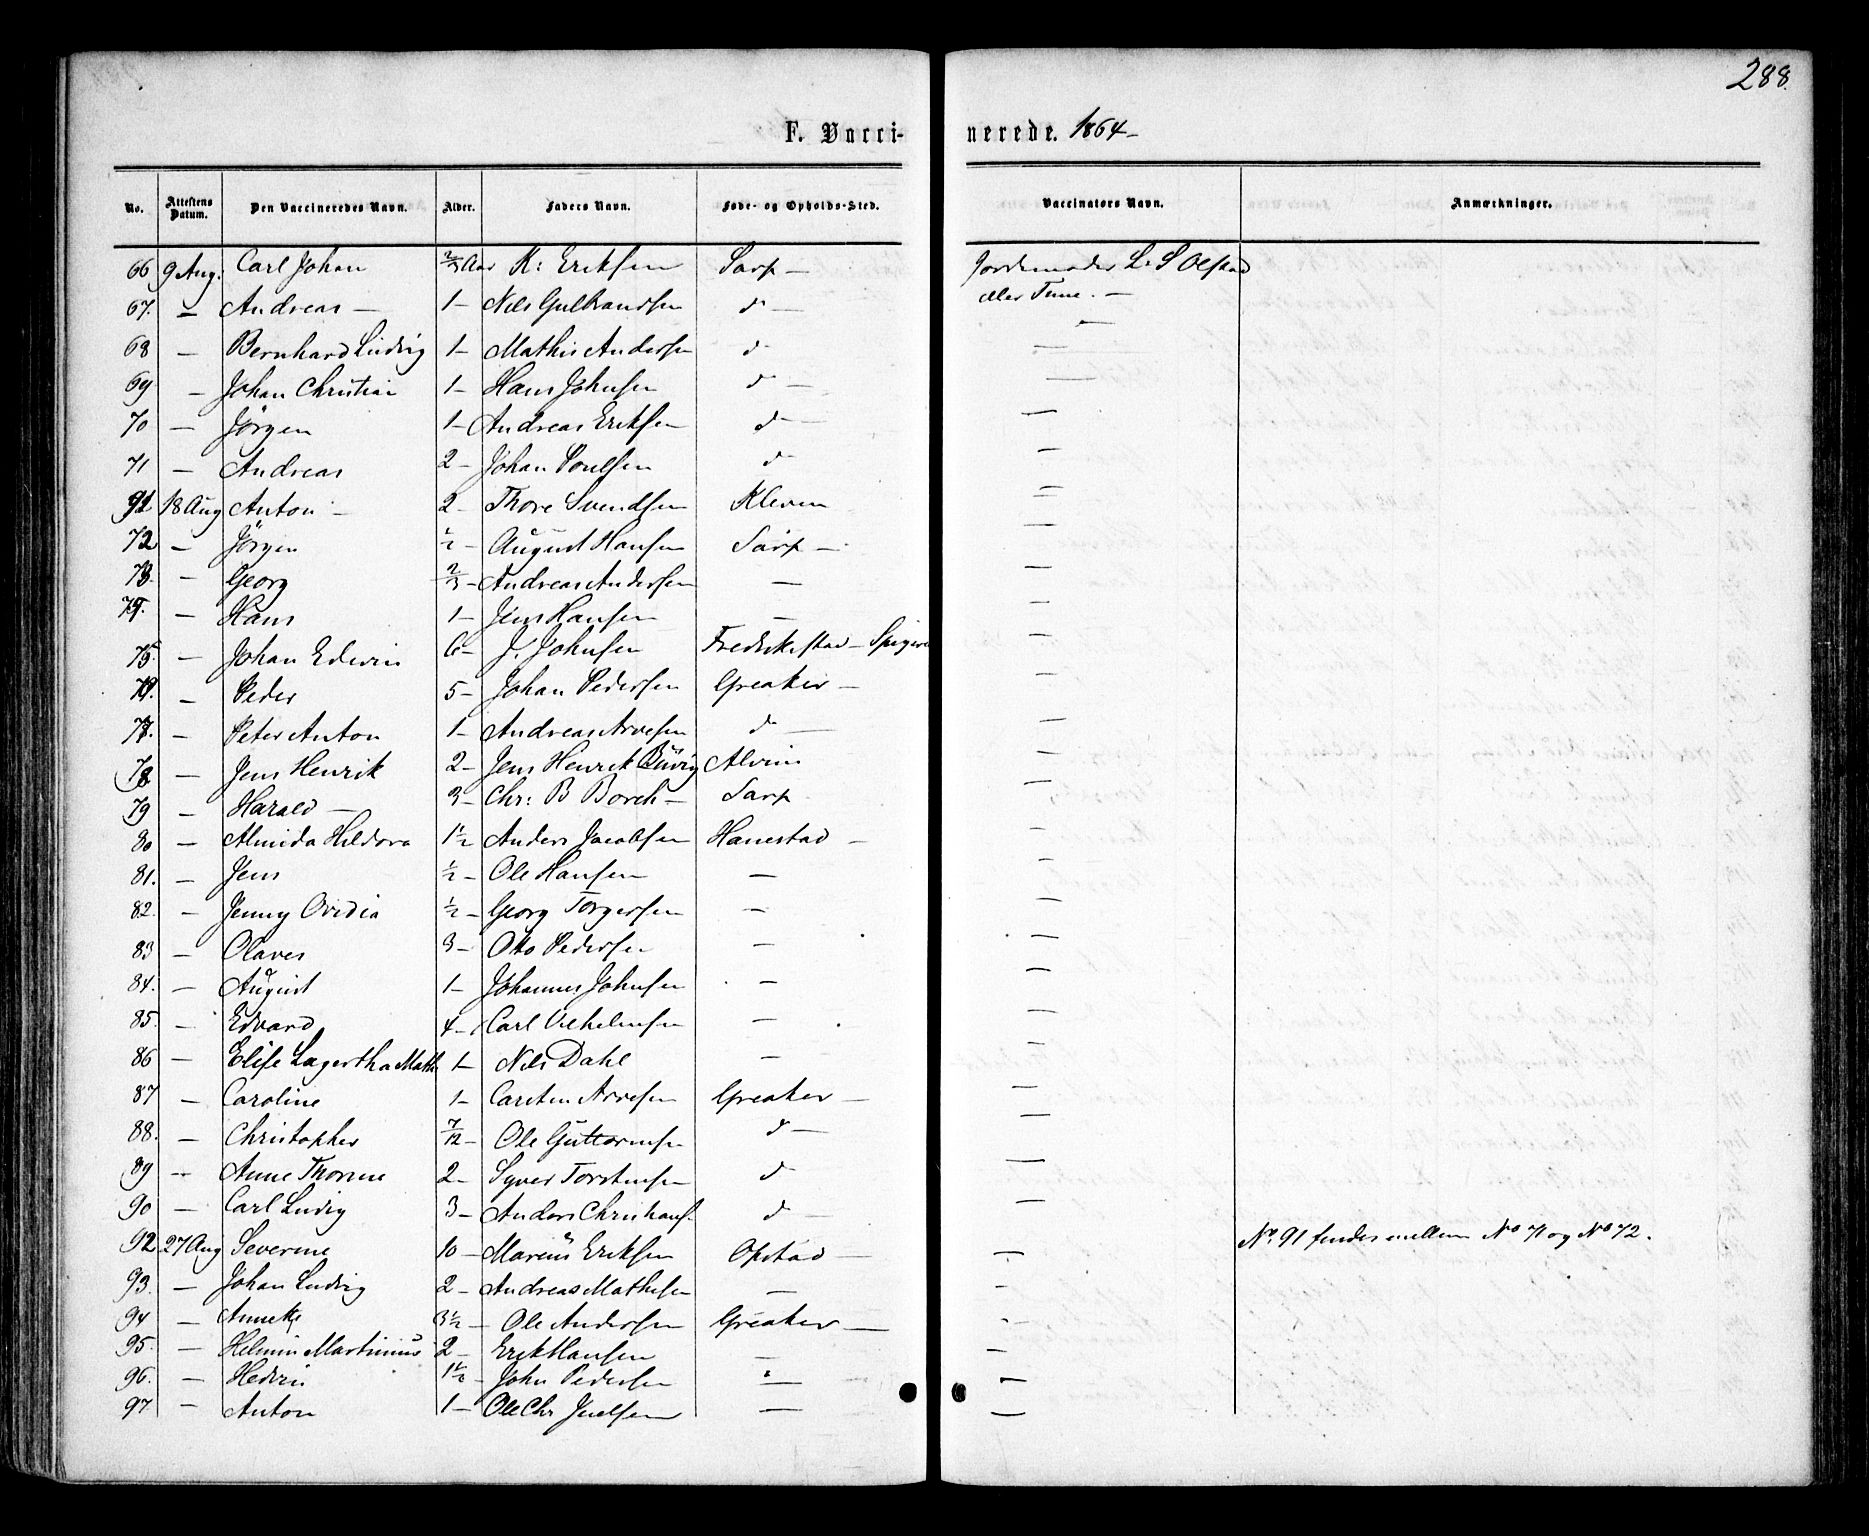 288.
F. Vacci- nerede. 1864 –
No. Attestens Datum. Den Vaccineredes Navn. Alder. Faders Navn. Føde- og Opholds-Sted. Vaccinators Navn. Anmærkninger.
66 9 Aug. Carl Johan 2/3 Aar K: Eriksen Sarp – Jordemoder L. S Olstad
67. – Andreas – 1 – Nils Gulbrandsen do – eller Tune. –
68 – Bernhard Ludvig 1 – Mathis Andersen do –
69 – Johan Christian 1 – Hans Johnsen do – –
70 – Jörgen 1 – Andreas Eriksen do – –
71 – Andreas 2 – Johan Poulsen do –
91 18 Aug Anton – 2 – Thore Svendsen Kleven –
72 – Jörgen 1/2 – August Hansen Sarp – –
73. – Georg 2/3 – Andreas Andersen – –
74. – Hans 1 – Jens Hansen – –
75. – Johan Edvin 6 – J. Johnsen Fredrikstad – –
76. – Peder 5 – Johan Pedersen Greaker – –
77. – Peter Anton 1 – Andreas Arvesen do – –
78 – Jens Henrik 2 – Jens Henrik Alvim –
79 – Harald – 3 – Chr: B Borch – Sarp –
80 – Almida Hildora 1 1/2 Anders Jacobsen Hanestad – –
81. – Jens 1/2 – Ole Hansen – –
82. – Jenny Ovidia 1/2 – Georg Torgersen – –
83 – Olaves 3 – Otto Pedersen – –
84. – August 1 – Johannes Johnsen – –
85. – Edvard 4 – Carl Vilhelmsen – –
86 – Elise Lagertha Math 1 – Nils Dahl – –
87 – Caroline 1 – Carsten Arvesen Greaker – –
88. – Christopher 7/12 – Ole Guttormsen do – –
89 – Anne Thorine 2 – Syver Torstensen do –
90 – Carl Ludvig 3 – Anders Christians. do – –
92 27 Aug Severine 10 – Marius Eriksen Opstad – – No. 91 findes mellem No 71 og No 72.
93. – Johan Ludvig 2 – Andreas Mathisen – –
94 – Annette 3 1/2 – Ole Andersen Greaker – –
95. – Helmin Martinius 2 – Erik Hansen – –
96. – Hedvin 1 1/2 – John Pedersen – –
97 – Anton 1 – Ole Chr Juelsen – –